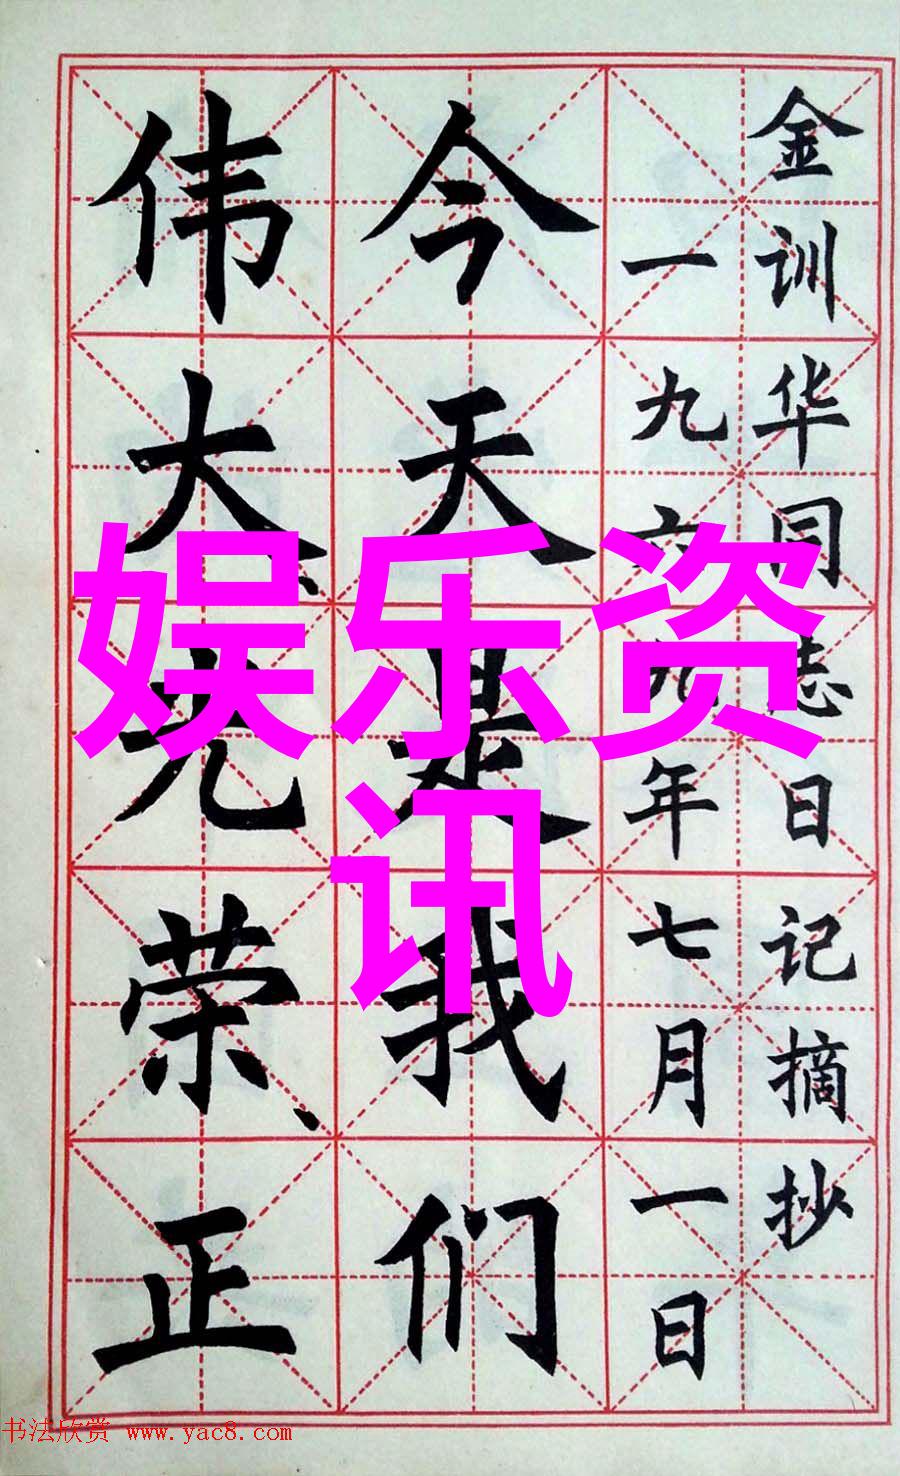 金训华同志日记摘抄
一九六九年七月一日
今天是我们
伟大、光荣、正
娱乐资
讯
书法欣赏 www.yac8.com